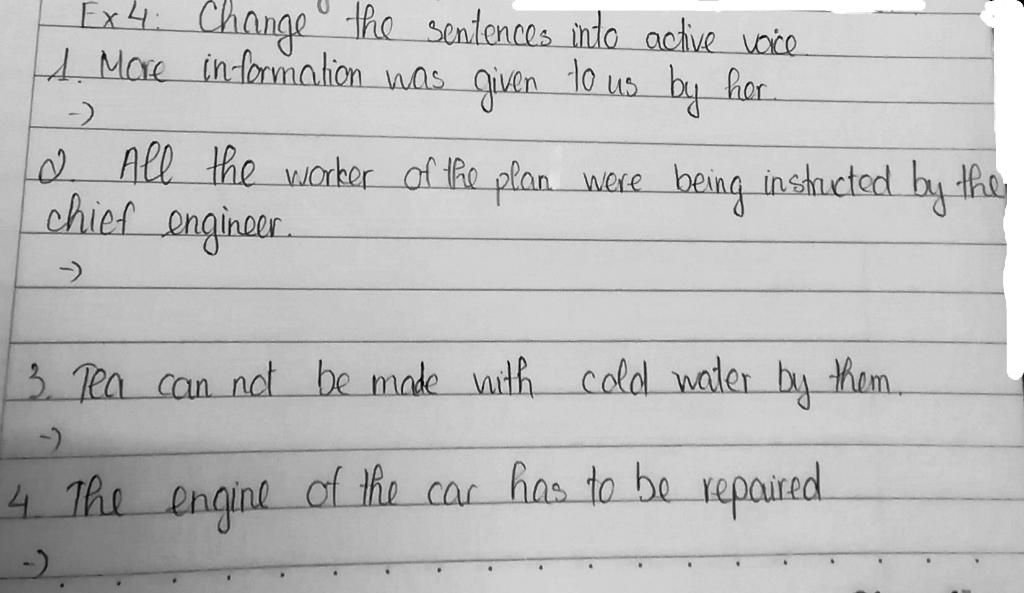 Ex 4: Change the sentences into active voice
1. More information was given to us by her.
->
2. All the worker of the plan were being instructed by the
chief engineer.
->
3. Tea can not be made with cold water by them.
->
4. The engine of the car has to be repaired
->